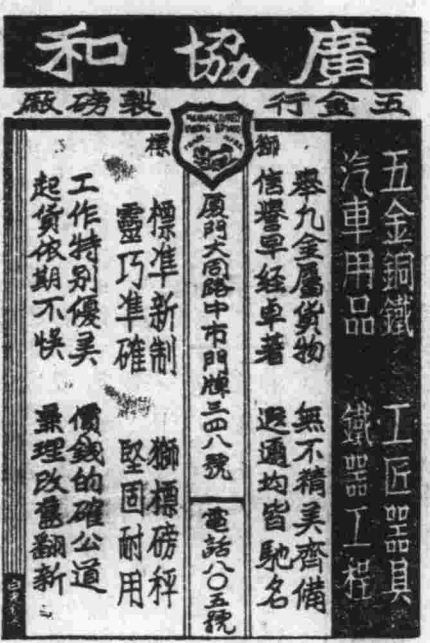 廣協和
五金行 製磅廠
獅標
五金銅鐵 工匠器具
汽車用品 鐵器工程
舉九金屬貨物 無不精美齊備
信譽早経卓著 遐邇均皆馳名
廈門大同路中市門牌三四八號 電話八〇五號
標準新制 獅標磅秤
靈巧準確 堅固耐用
工作特別優美 價錢的確公道
起貨依期不悞 兼理改舊翻新